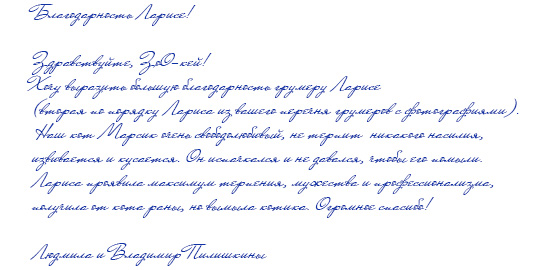 Благодарность Ларисе!
Здравствуйте, ЗоО-кей!
Хочу выразить большую благодарность грумеру Ларисе
(вторая по порядку Лариса из вашего перечня грумеров с фотографиями).
Наш кот Марсик очень свободолюбивый, не терпит никакого насилия,
извивается и кусается. Он испачкался и не давался, чтобы его помыли.
Лариса проявила максимум терпения, мужества и профессионализма,
получила от кота раны, но вымыла котика. Огромное спасибо!
Людмила и Владимир Пилишкины